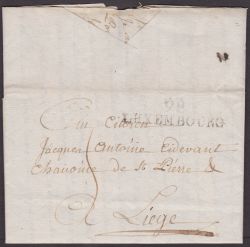 98
LUXEMBOURG
Au Citoien
Jacques Antoine Cidevant
Chanoine de St Pierre &
a Liege